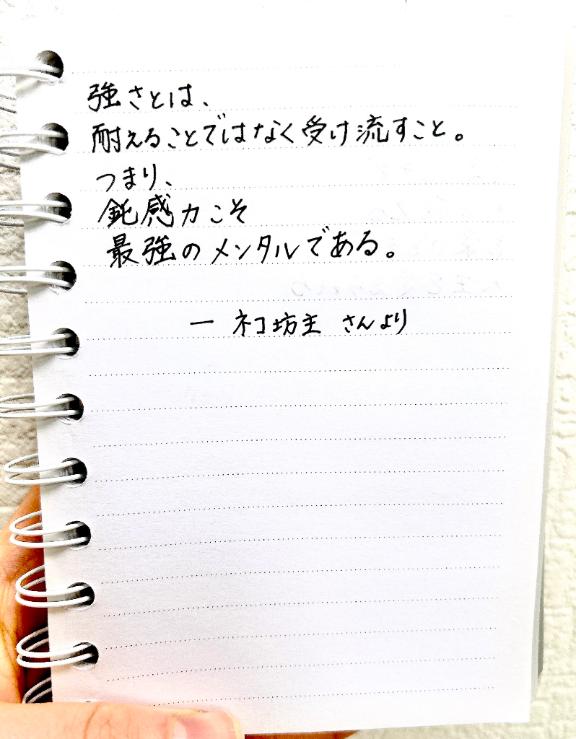 強さとは、
耐えることではなく受け流すこと。
つまり、
鈍感力こそ
最強のメンタルである。
— ネコ坊主 さんより